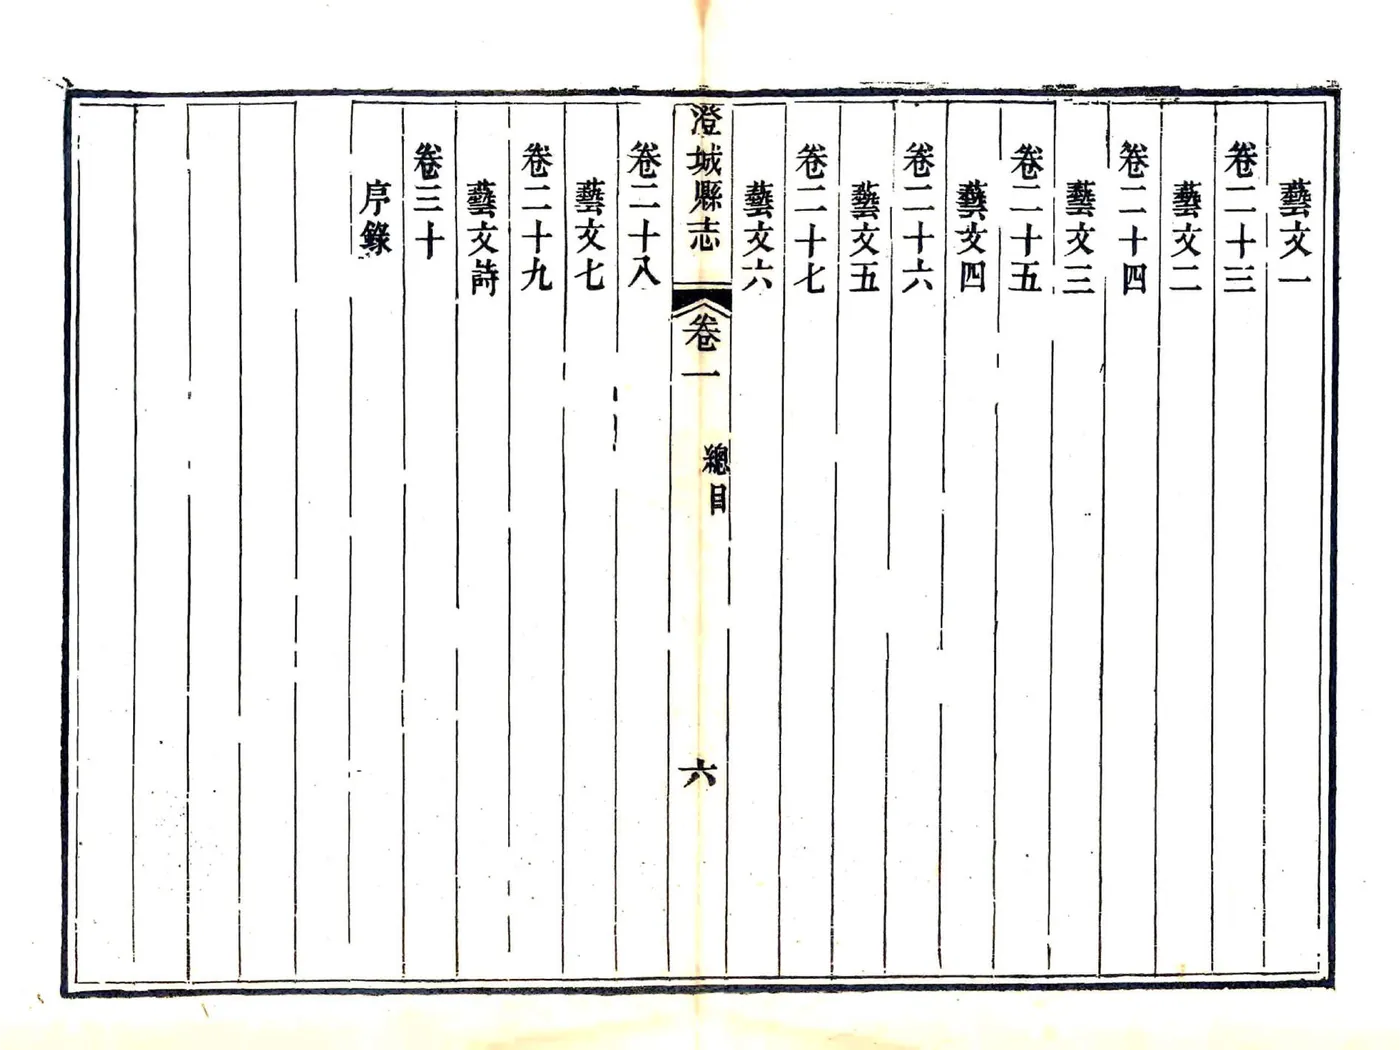 藝文一
卷二十三
藝文二
卷二十四
藝文三
卷二十五
藝文四
卷二十六
藝文五
卷二十七
藝文六
澄城縣志
卷一
總目
六
卷二十八
藝文七
卷二十九
藝文詩
卷三十
序錄